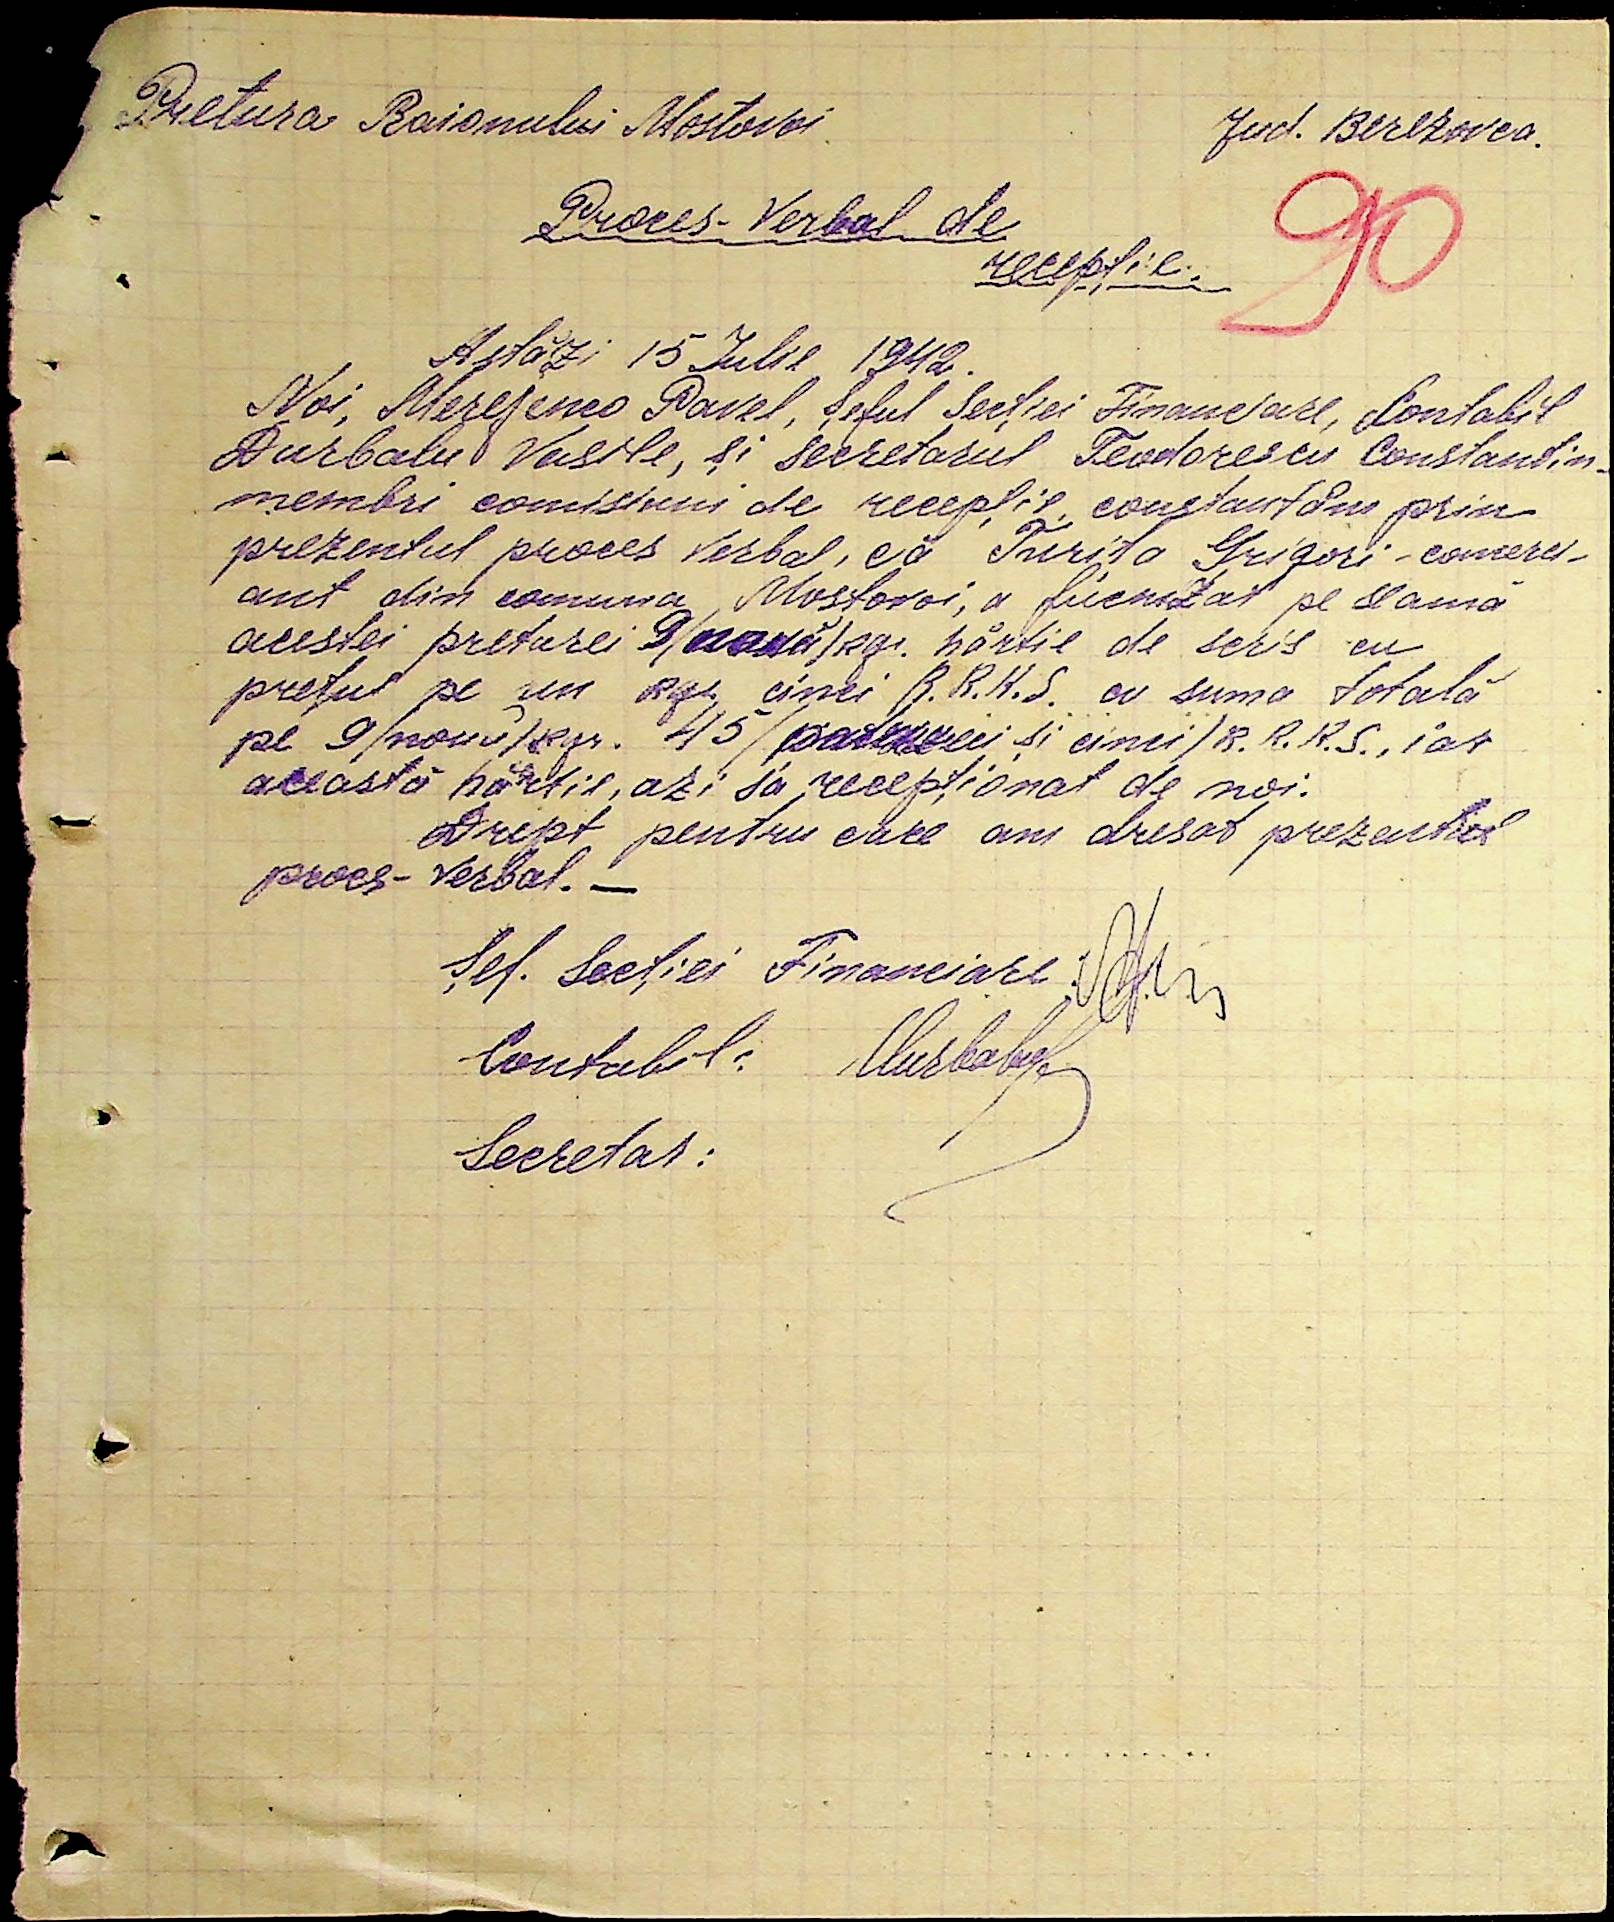 Pretura Raionului Mostovoi.
Jud. Berezovca.
90
Proces-Verbal de
recepție.
Astăzi 15 Iulie 1942.
Noi, Merejenco Pavel, Șeful Secției Financiare, Contabil
Durbalu Vasile, și secretarul Teodorescu Constantin-
membri comisiuni de recepție, constantăm prin
prezentul proces verbal, că Turița Grigori - comerci-
ant din comuna Mostovoi, a fucnizat pe seamă
acestei preturei 9/nouă/kgr. hârtie de scris cu
prețul pe un kgr. cinci R.R.K.S. cu suma totală
pe 9/nouă/kgr. 45/patruzeci și cinci/R.R.K.S., iar
această hârtie, azi sa recepționat de noi.
Drept pentru care am dresat prezentul
proces-verbal. —
Șef. Secției Financiare
Contabil:
Secretar: